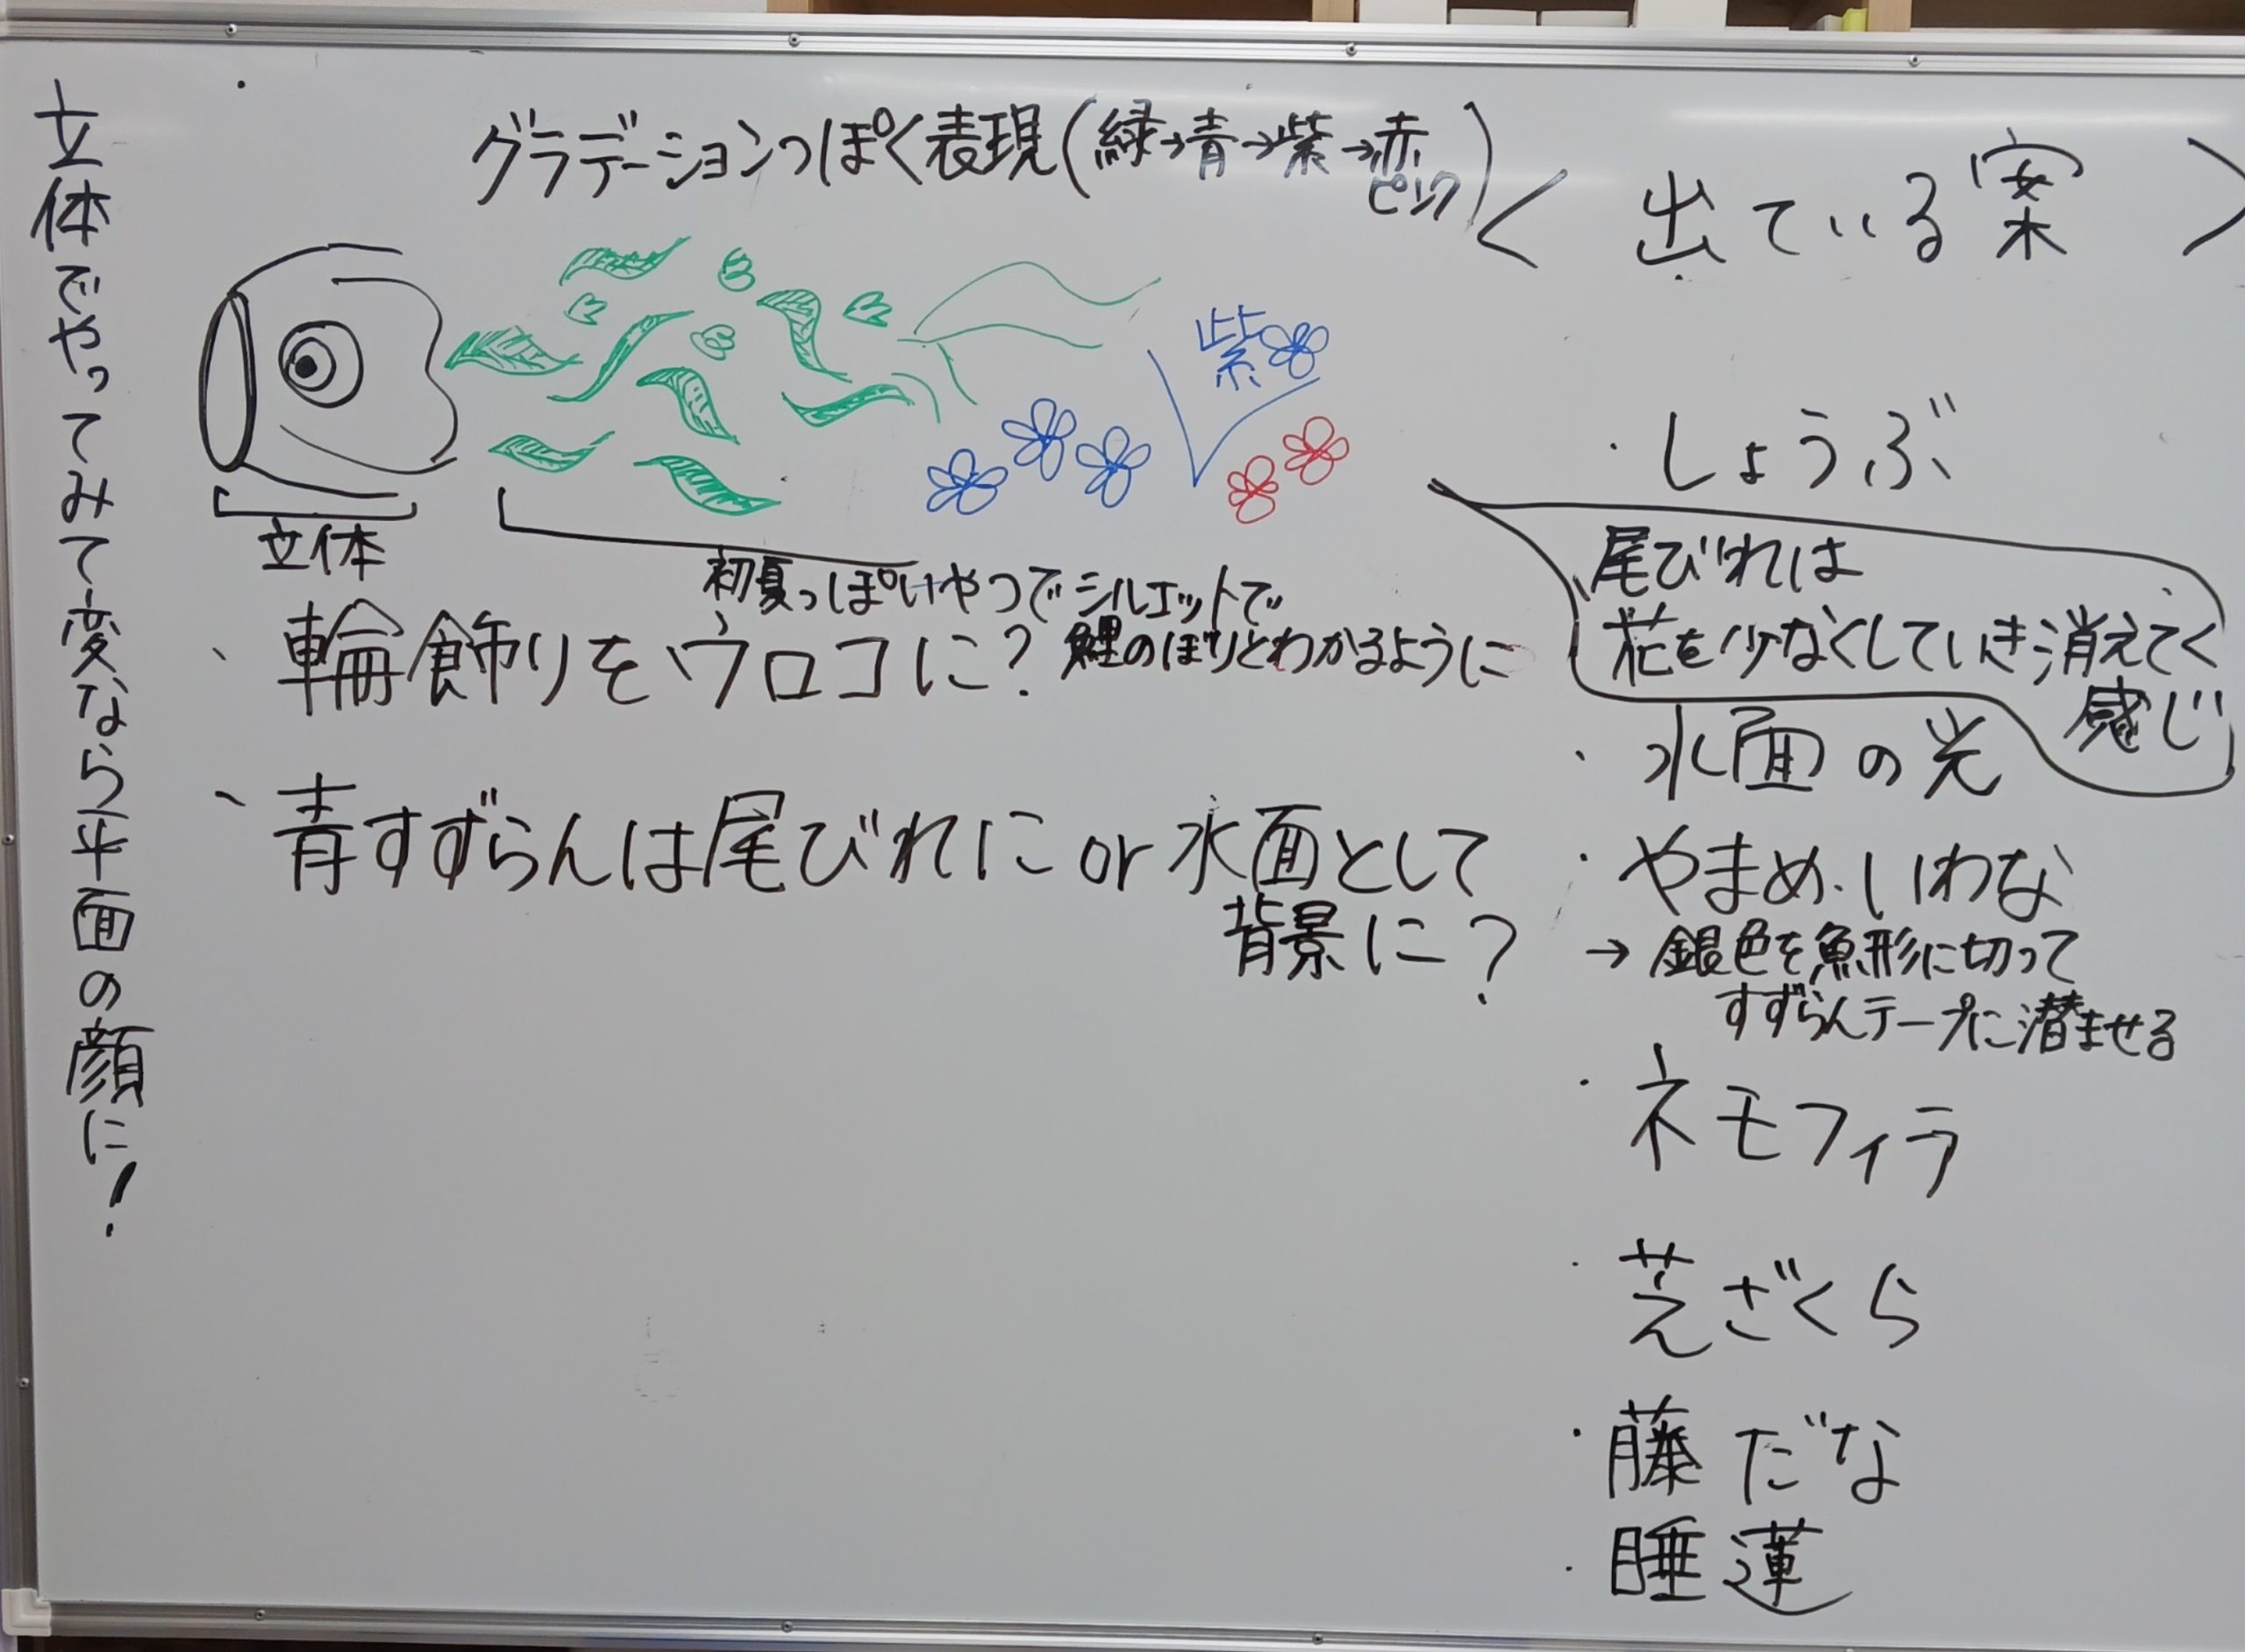 立体でやってみて変なら平面の顔に!
グラデーションっぽく表現(緑→青→紫→赤
ピンク)
紫
立体
初夏っぽいやつでシルエットで
鯉のぼりとわかるように
、輪飾りをウロコに?
、青すずらんは尾びれに or 水面として
背景に?
<出ている案>
・しょうぶ
尾びれは
花を少なくしていき消えてく
感じ
・水面の光
・やまめ・いわな
→銀色を魚形に切って
すずらんテープに潜ませる
・ネモフィラ
・芝ざくら
・藤だな
・睡蓮